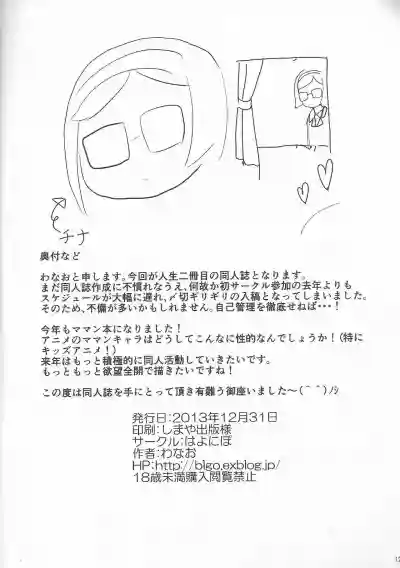 チナ
奥付など
わなおと申します。今回が人生二冊目の同人誌となります。
まだ同人誌作成に不慣れなうえ、何故か初サークル参加の去年よりも
スケジュールが大幅に遅れ、〆切ギリギリの入稿となってしまいました。
そのため、不備が多いかもしれません。自己管理を徹底せねば・・・！
今年もママン本になりました！
アニメのママンキャラはどうしてこんなに性的なんでしょうか！（特に
キッズアニメ！）
来年はもっと積極的に同人活動していきたいです。
もっともっと欲望全開で描きたいですね！
この度は同人誌を手にとって頂き有難う御座いました～(＾＾)ﾉｼ
発行日：2013年12月31日
印刷：しまや出版様
サークル：はよにぽ
作者：わなお
HP：http://blgo.exblog.jp/
18歳未満購入閲覧禁止